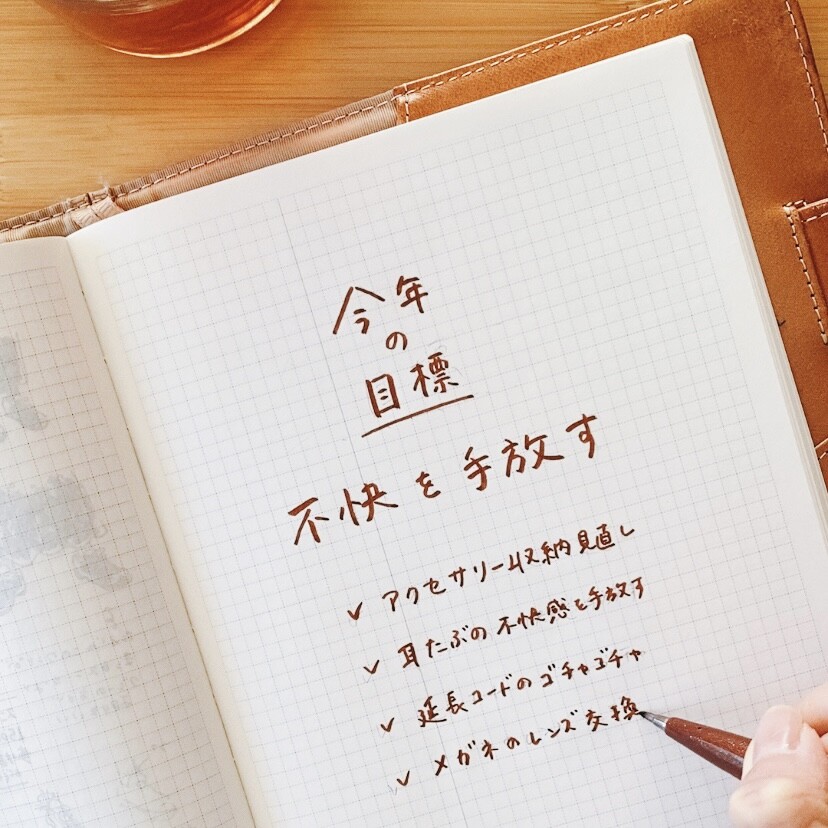 今年
の
目標
不快を手放す
✓ アクセサリー収納見直し
✓ 耳たぶの不快感を手放す
✓ 延長コードのゴチャゴチャ
✓ メガネのレンズ交換